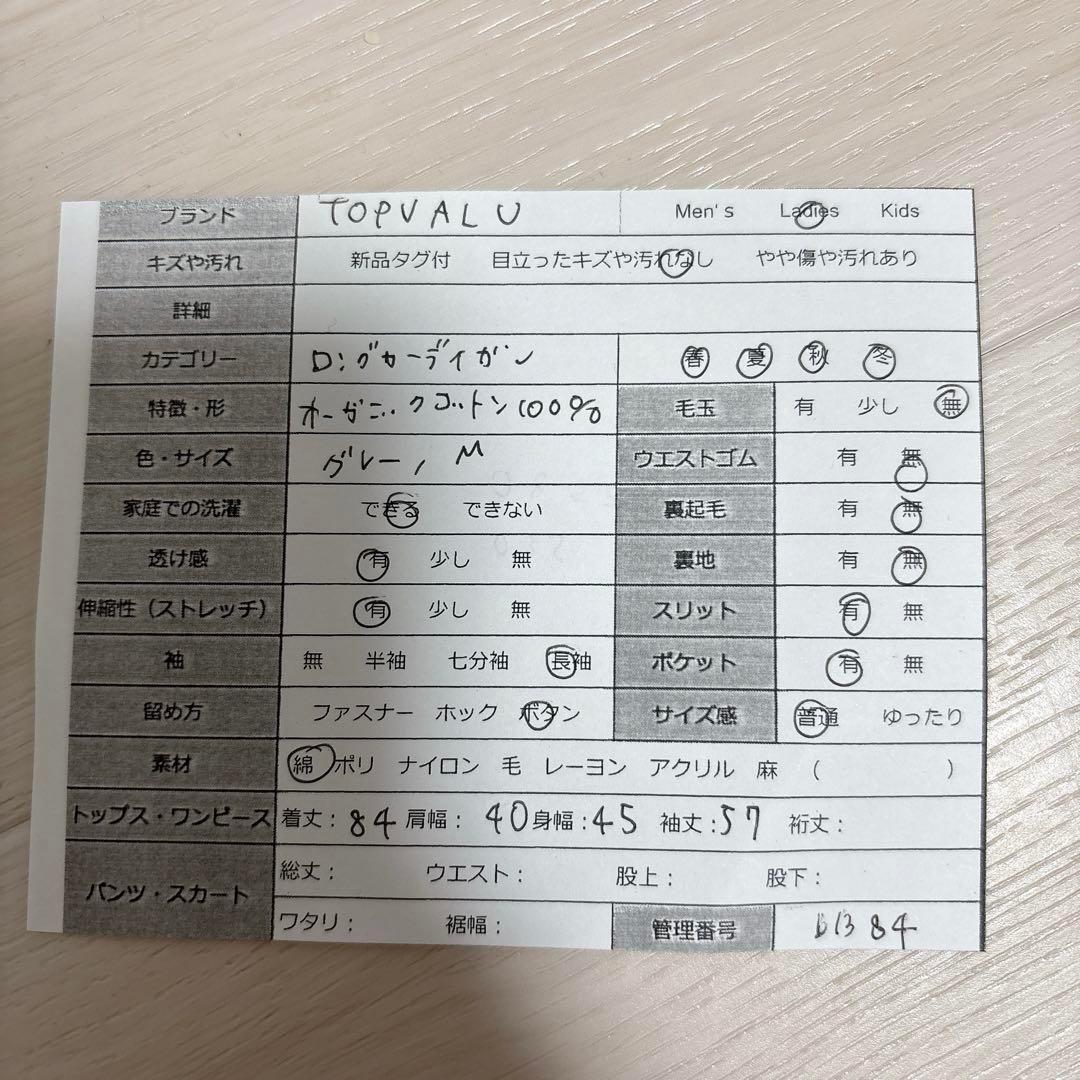 ブランド TOPVALU Men's Ladies Kids
キズや汚れ 新品タグ付 目立ったキズや汚れなし やや傷や汚れあり
詳細
カテゴリー ロングカーディガン 春 夏 秋 冬
特徴・形 オーガニックコットン100% 毛玉 有 少し 無
色・サイズ グレー, M ウエストゴム 有 無
家庭での洗濯 できる できない 裏起毛 有 無
透け感 有 少し 無 裏地 有 無
伸縮性（ストレッチ） 有 少し 無 スリット 有 無
袖 無 半袖 七分袖 長袖 ポケット 有 無
留め方 ファスナー ホック ボタン サイズ感 普通 ゆったり
素材 綿 ポリ ナイロン 毛 レーヨン アクリル 麻 （ ）
トップス・ワンピース 着丈：84 肩幅：40 身幅：45 袖丈：57 裄丈：
パンツ・スカート 総丈： ウエスト： 股上： 股下：
ワタリ： 裾幅： 管理番号 b1384